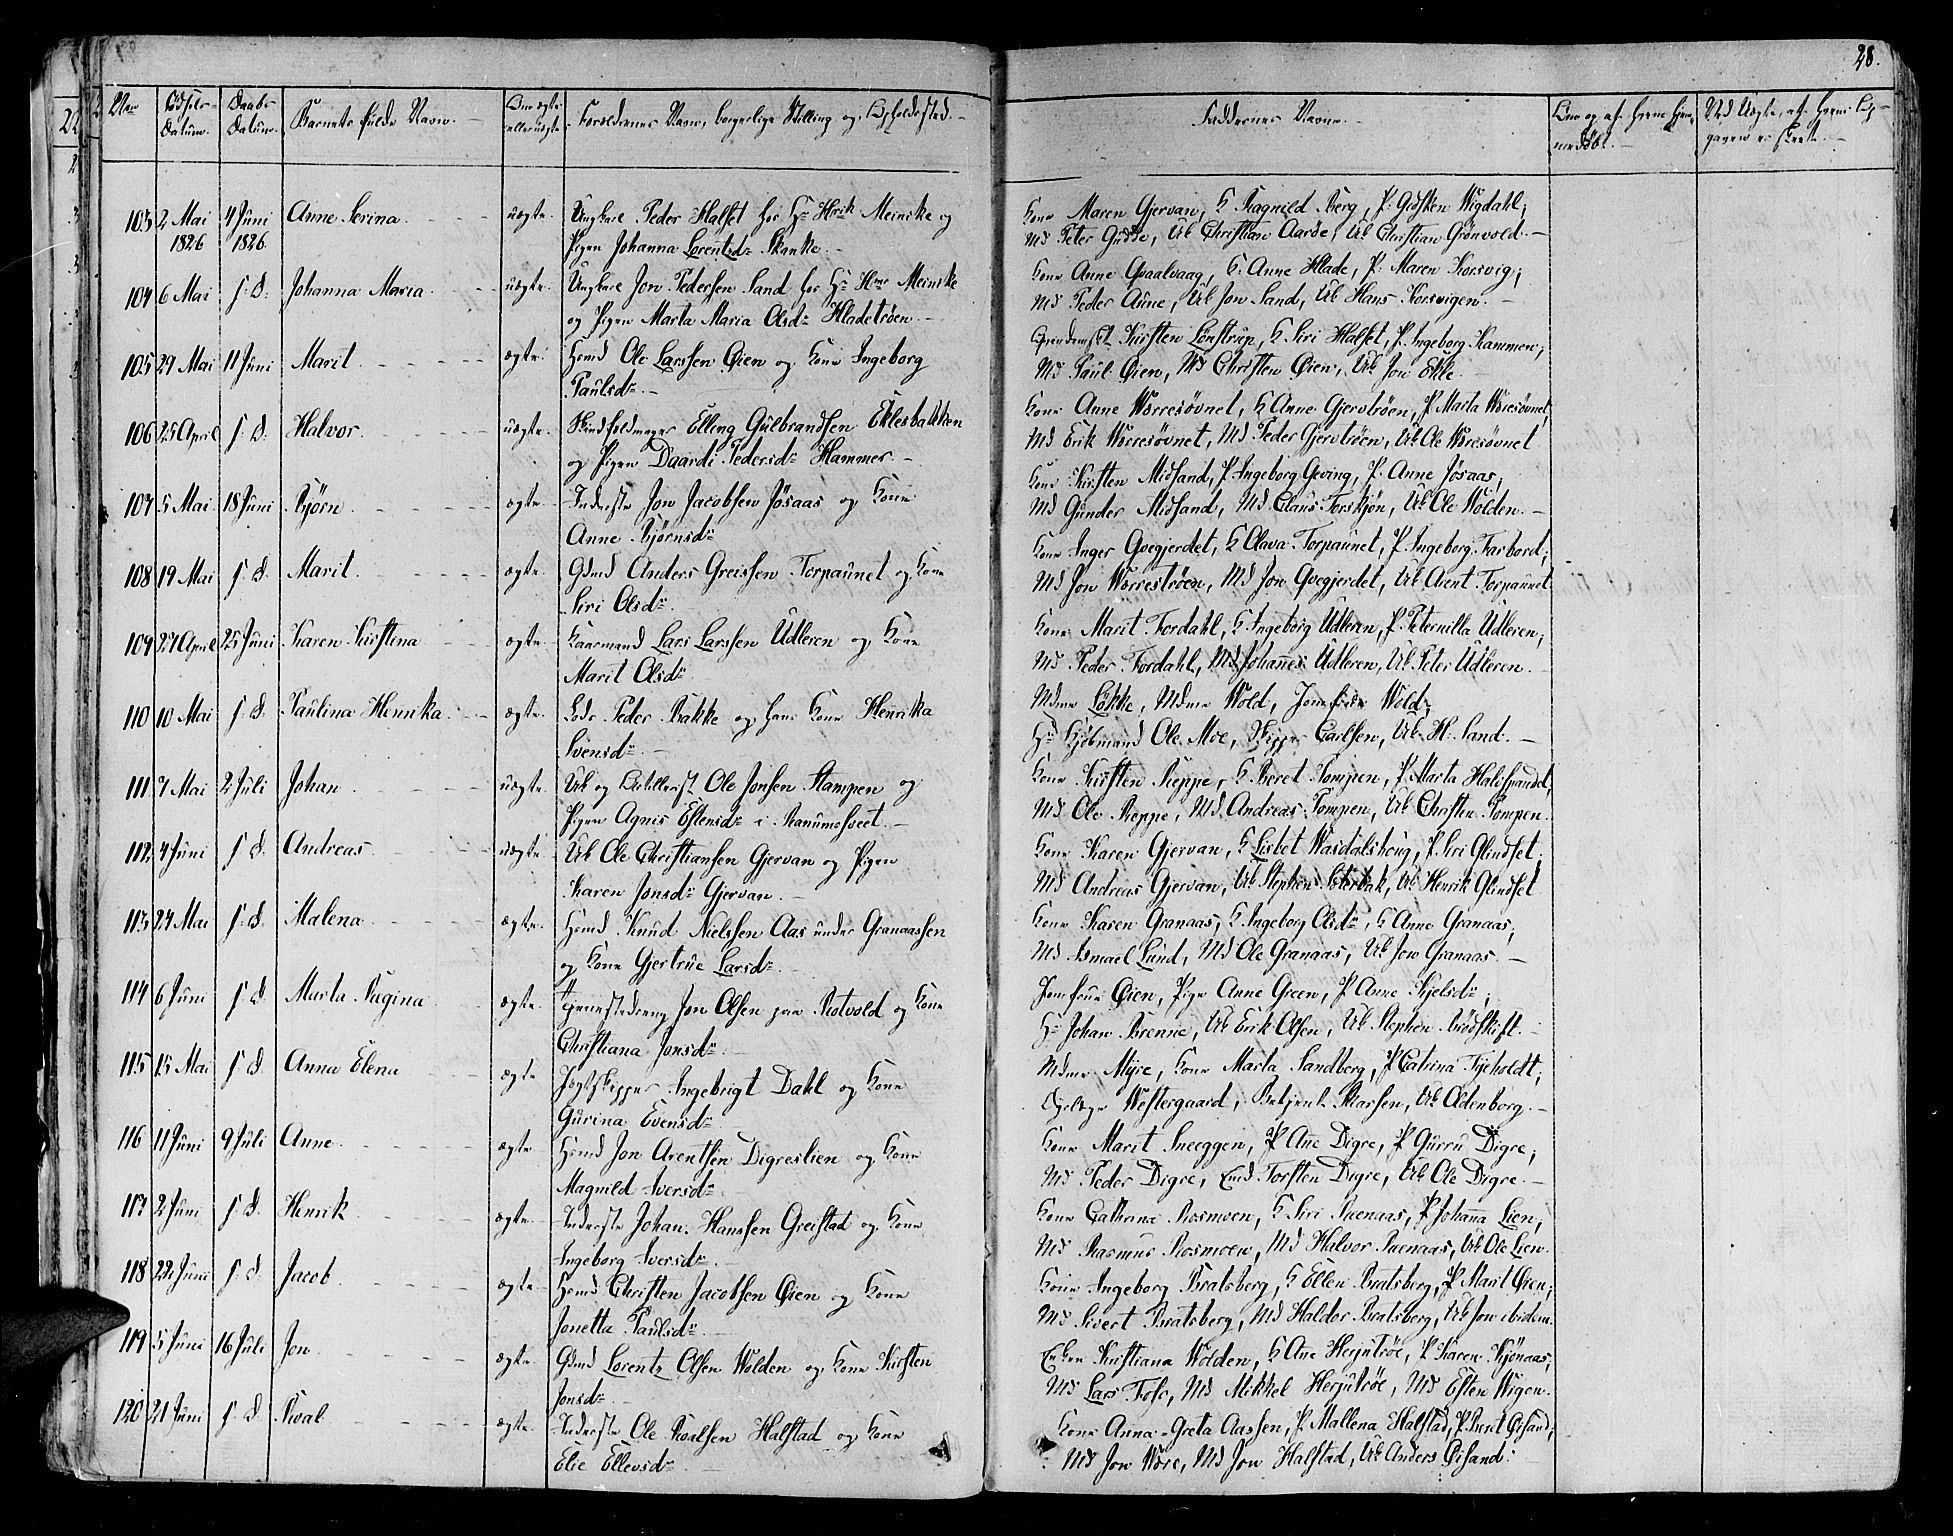 28.
No Fødsels-Datum. Daabs-Datum. Barnets fulde Navn. Om ægte eller uægte Forældrenes Navn, borgerlige Stilling og Opholdssted.
Faddernes Navne.
103 2 Mai 1826 4 Juni 1826 Anne Serina. uægte. Ungkarl Peder Halset hos Hr Hrik Meincke og
Pigen Johanna Lorentzdr Skanke.
Kone Maren Gjervan, K Ragnild Berg, P. Gidsken Wigdahl;
Md Peter Gudde, Uk Christian Aarde, Uk Christian Grönvold.
104 6 Mai s. D. Johanna Maria. uægte. Ungkarl Jon Pedersen Sand hos Hr Hmr Meincke
og Pigen Marta Maria Olsdr Hladetröen.
Kone Anne Qvaalvaag, K. Anne Hlade, P. Maren Korsvig;
Md Peder Aune, Uk Jon Sand, Uk Hans Korsvigen.
105 29 Mai 11 Juni Marit. ægte. Hsmd Ole Larssen Öien og Kone Ingeborg
Paulsdr
Kirsten Lönstrup, K Siri Halset, P. Ingeborg Kammen;
Md Paul Öien, Md Christen Öien, Uk Jon Ekle.
106 25 April s. D. Halvor. uægte. Elling Gulbrandsen Eklesbakken
og Pigen Daardi Pedersdr Hammer.
Kone Anne Worresövnet, K Anne Gjervtröen, P Marta Worresövnet,
Md Erik Worresövnet, Md Peder Gjervtröen, Uk Ole Worresövnet
107 5 Mai 18 Juni Björn. ægte. Inderste Jon Jacobsen Jösaas og Kone
Anne Björnsdr
Kone Kirsten Midsand, P. Ingeborg Geving, P. Anne Jösaas;
Md Gunder Midsand, Md Claus Forskjön, Uk Ole Wolden.
108 19 Mai s. D. Marit. ægte. Gdmd Anders Greissen Torpaunet og Kone
Siri Olsdr.
Kone Inger Qvegjerdet, K Olava Torpaunet, P. Ingeborg Farbord;
Md Jon Worreströen, Md Jon Qvegjerdet, Uk Arent Torpaunet
109 27 April 25 Juni Karen Kirstina ægte. Kaarmand Lars Larssen Udleren og Kone
Marit Olsdr
Kone Marit Fordahl, K Ingeborg Udleren, P. Peternilla Udleren;
Md Peder Fordahl, Md Johannes Udleren, Uk Peter Udleren.
110 10 Mai s. D. Paulina Henrika. ægte. Lods Peder Bakke og hans Kone Henrika
Svensdr.
Mdme Lökke, Mdme Wold, Jomfrue Wold;
Hr Kjöbmand Ole Moe, Skipper Carlsen, Uk H. Sand.
111 7 Mai 2 Juli Johan uægte. Uk og Ole Jonsen Stampen og
Pigen Agnis Estensdr i Ranumsfveet.
Kone Kirsten Reppe, K. Beret Pompen, P. Marta
Md Ole Reppe, Md Andreas Pompen, Uk Christen Pompen.
112 4 Juni s. D. Andreas. uægte Uk Ole Christiansen Gjervan og Pigen
Karen Jonsdr Gjervan.
Kone Karen Gjervan, K Lisbet Wasdalshoug, P. Siri Glindset;
Md Andreas Gjervan, Uk Stephen, Uk Henrik Glindset
113 24 Mai s. D. Malena ægte. Hsmd Knud Nielssen Aas under Granaassen
og Kone Gjertrue Larsdr.
Kone Karen Granaas; K Ingeborg Olsdr, K Anne Granaas;
Md Asmael Lund, Md Ole Granaas, Uk Jon Granaas.
114 6 Juni s. D Marta Regina ægte. Tjenestedreng Jon Olsen paa Rotvold og Kone
Christiana Jonsdr
Jomfrue Öien, Pige Anne Green, P. Anne Kjelsdr;
Hr Johan Brenne, Uk Erik Olsen, Uk Stephen Brödskift.
115 15 Mai s. D Anna Elena ægte Jagtskipper Ingebrigt Dahl og Kone
Gurina Evensdr
Mdme Myre, Kone Marta Sandberg, P Catrina Tyeholdt;
Westergaard, Betjent Karsen, Uk Oldenborg.
116 11 Juni 9 Juli Anne. ægte. Hsmd Jon Arentsen Digreslien og Kone
Magnild Iversdr.
Kone Marit Sneeggen, P Ane Digre, P Gurru Digre;
Md Peder Digre, Emd Torsten Digre, Uk Ole Digre.
117 2 Juni s. D. Henrik ægte. Inderste Johan Hanssen Greistad og Kone
Ingeborg Iversdr.
Kone Cathrina Rosmoen, K Siri Ruenaas, P Johanna Lien,
Md Rasmus Rosmoen, Md Halvor Ruenaas, Uk Ole Lien.
118 22 Juni s. D. Jacob. ægte Hsmd Christen Jacobsen Öien og Kone
Jonetta Paulsdr.
Kone Ingeborg Bratsberg, K Ellen Bratsberg, P Marit Öien;
Md Sivert Bratsberg, Md Haldor Bratsberg, Uk Jon ibidem.
119 5 Juni 16 Juli Jon ægte. Gdmd Lorentz Olsen Wolden og Kone Kirsten
Jonsdr.
Enken Kirstiana Wolden, K Ane Herjutröe, P. Karen Kjönaas;
Md Lars Foss, Md Mikkel Herjutröe, Md Esten Wigen.
120 21 Juni s. D Roal ægte. Inderste Ole Roalsen Halstad og Kone
Elie Ellevsdr.
Kone Anna-Greta Aassen, P. Mallena Halstad, P. Berit Öisand;
Md Jon Wære, Md Jon Halstad, Uk Anders Öisand.